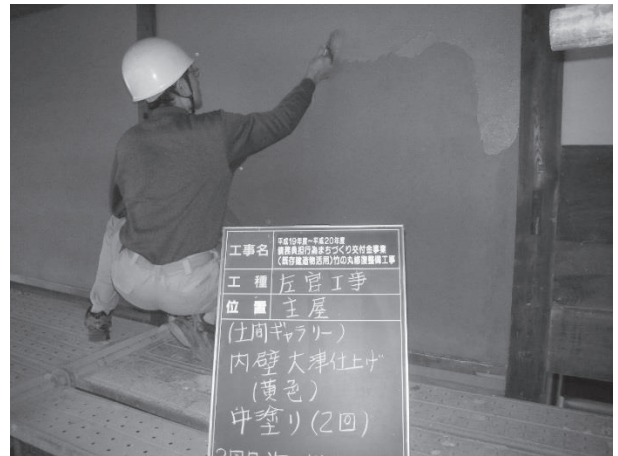 工事名 平成19年度~平成20年度
債務負担行為まちづくり交付金事業
(既存建造物活用)竹の丸修復整備工事
工種 左官工事
位置 主屋
(土間ギャラリー)
内壁大津仕上げ
(黄色)
中塗り(2回)